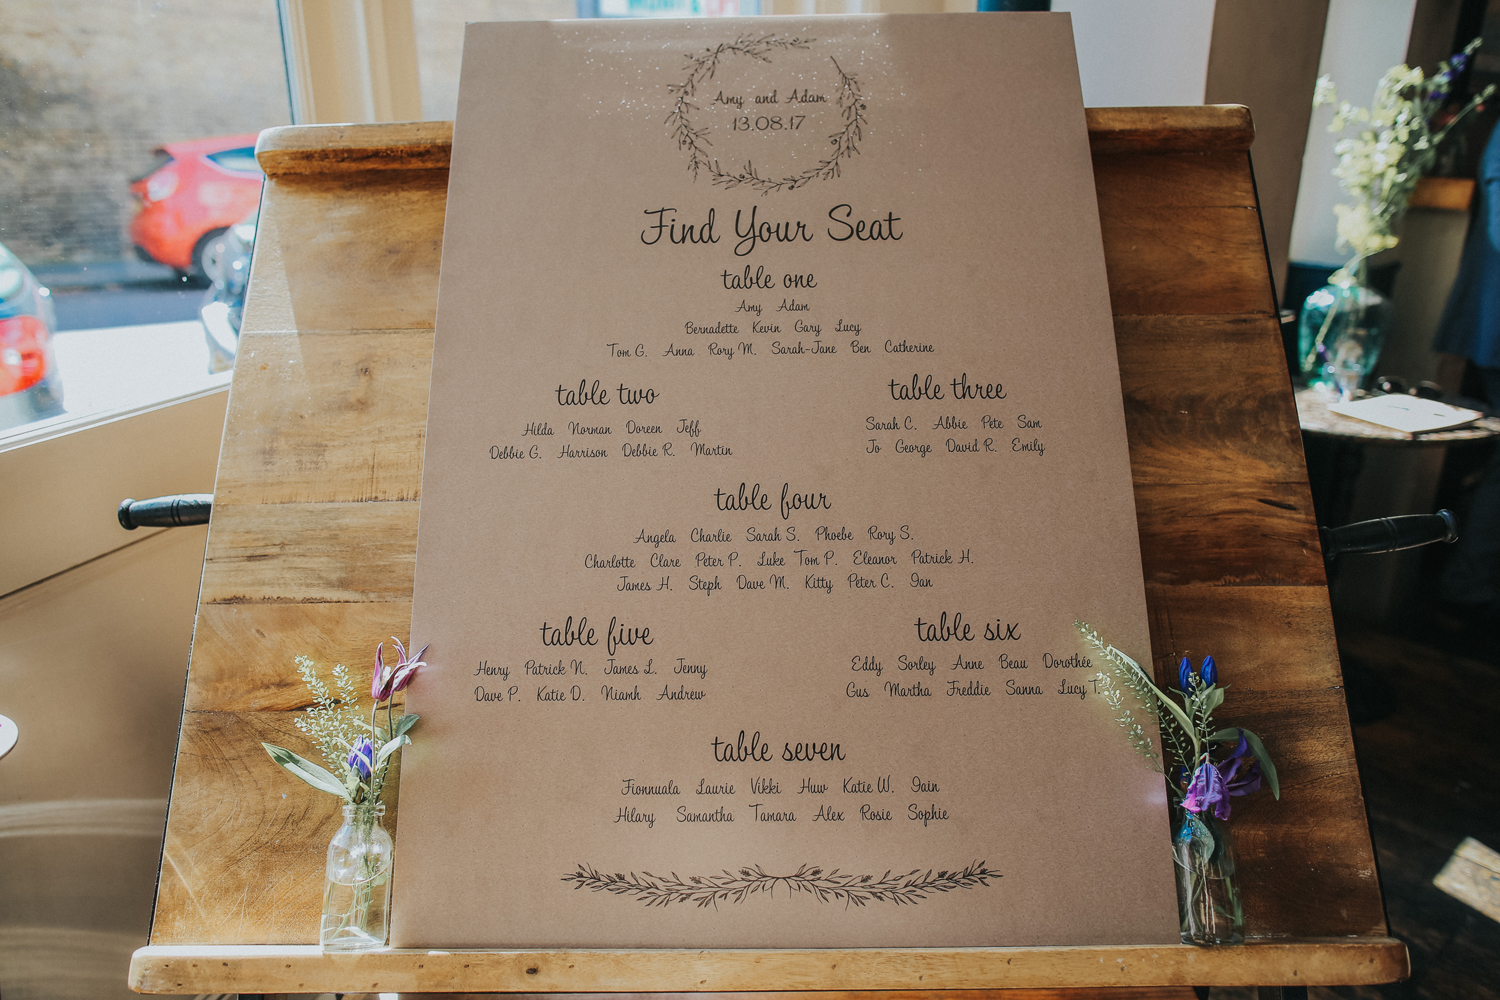 Amy and Adam
13.08.17
Find Your Seat
table one
Amy Adam
Bernadette Kevin Gary Lucy
Tom G. Anna Rory M. Sarah-Jane Ben Catherine
table two
Hilda Norman Doreen Jeff
Debbie G. Harrison Debbie R. Martin
table three
Sarah C. Abbie Pete Sam
Jo George David R. Emily
table four
Angela Charlie Sarah S. Phoebe Rory S.
Charlotte Clare Peter P. Luke Tom P. Eleanor Patrick H.
James H. Steph Dave M. Kitty Peter C. Ian
table five
Henry Patrick N. James L. Jenny
Dave P. Katie D. Niamh Andrew
table six
Eddy Sorley Anne Beau Dorothée
Gus Martha Freddie Sanna Lucy T.
table seven
Fionnuala Laurie Vikki Huw Katie W. Iain
Hilary Samantha Tamara Alex Rosie Sophie